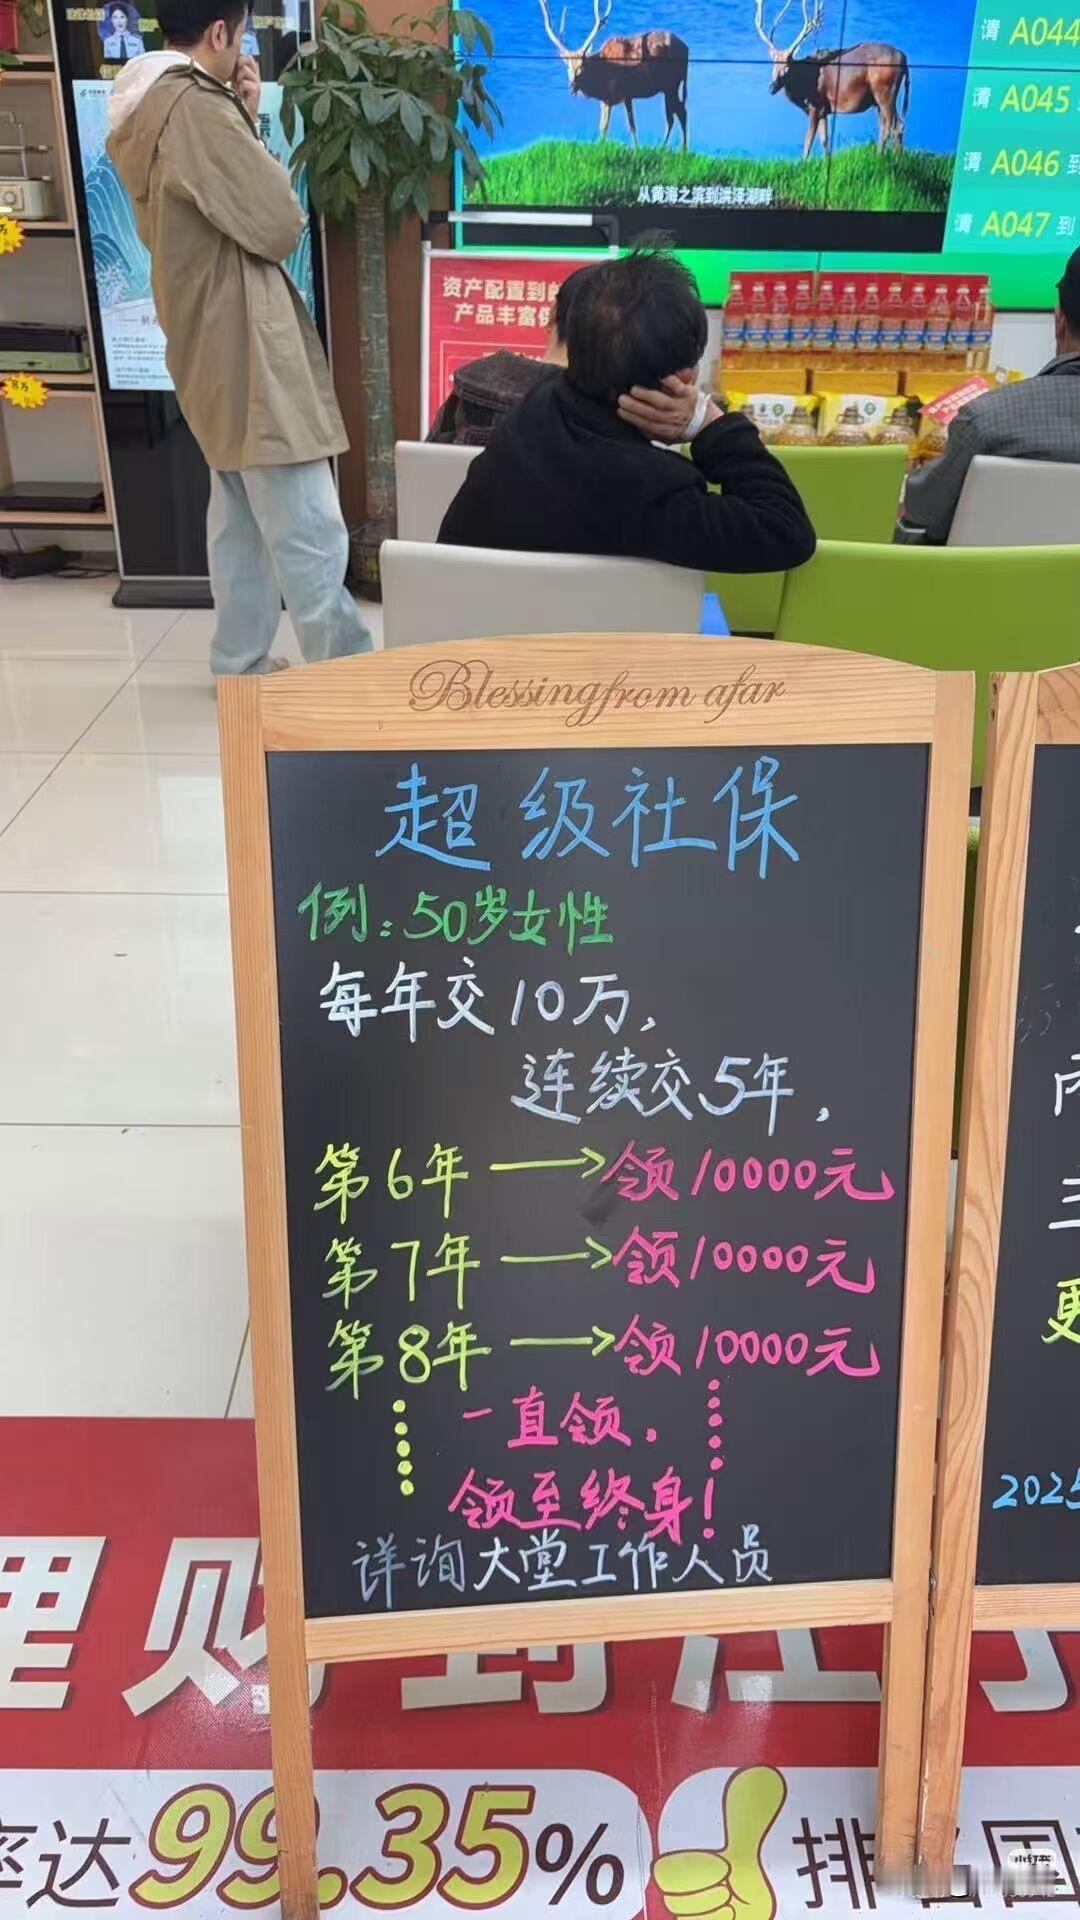 请 A044
请 A045
请 A046 到
请 A047 到
从黄海之滨到洪泽湖畔
资产配置到
产品丰富保
Blessing from afar
超级社保
例：50岁女性
每年交10万，
连续交5年，
第6年 → 领10000元
第7年 → 领10000元
第8年 → 领10000元
一直领，
领至终身！
详询大堂工作人员
2025
理财到江
率达99.35%
排名国
小红书